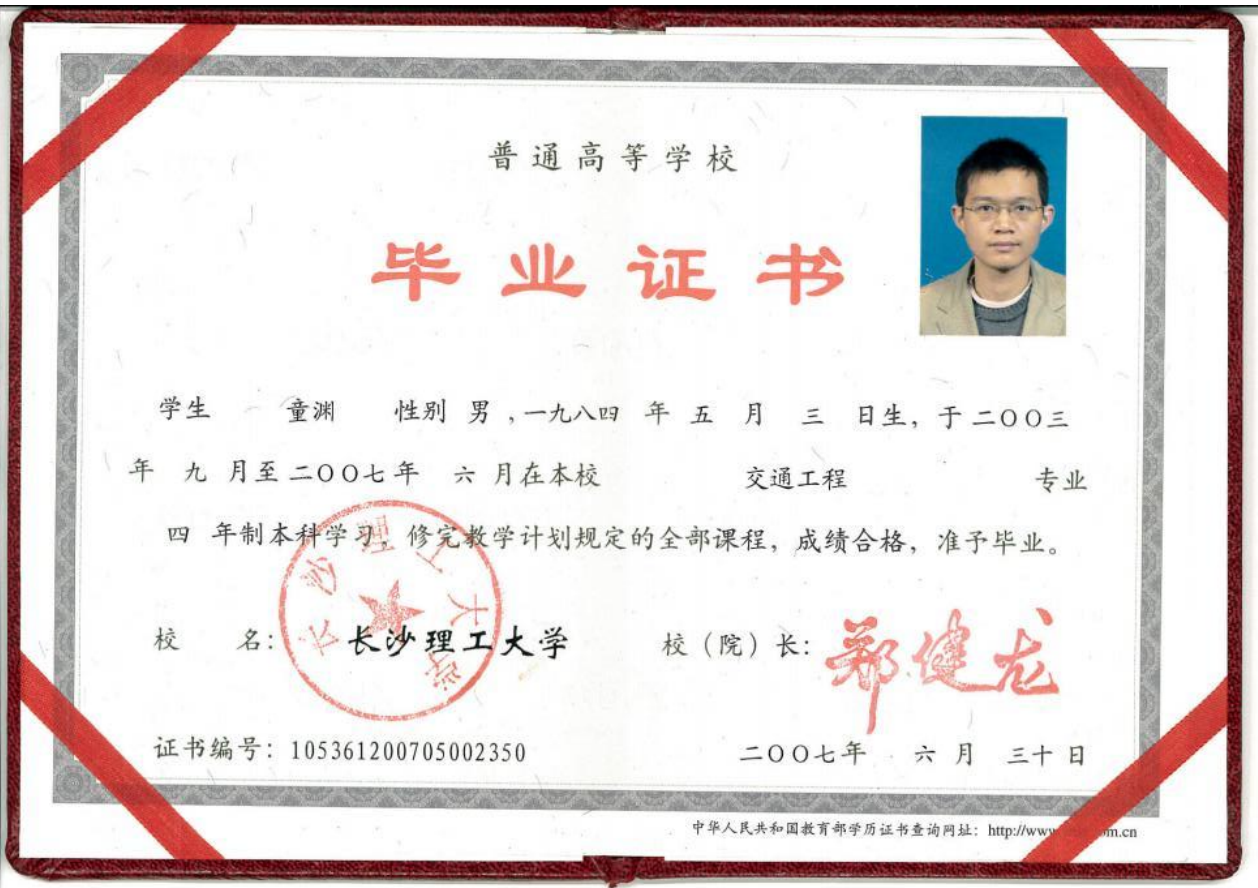 普通高等学校
毕业证书
学生 童渊 性别 男,一九八四 年 五 月 三 日生,于二〇〇三
年 九 月至二〇〇七年 六 月在本校 交通工程 专业
四 年制本科学习,修完教学计划规定的全部课程,成绩合格,准予毕业。
长沙理工大学
校 名: 长沙理工大学 校(院)长: 郑健龙
证书编号: 105361200705002350 二〇〇七年 六 月 三十 日
中华人民共和国教育部学历证书查询网址: http://www